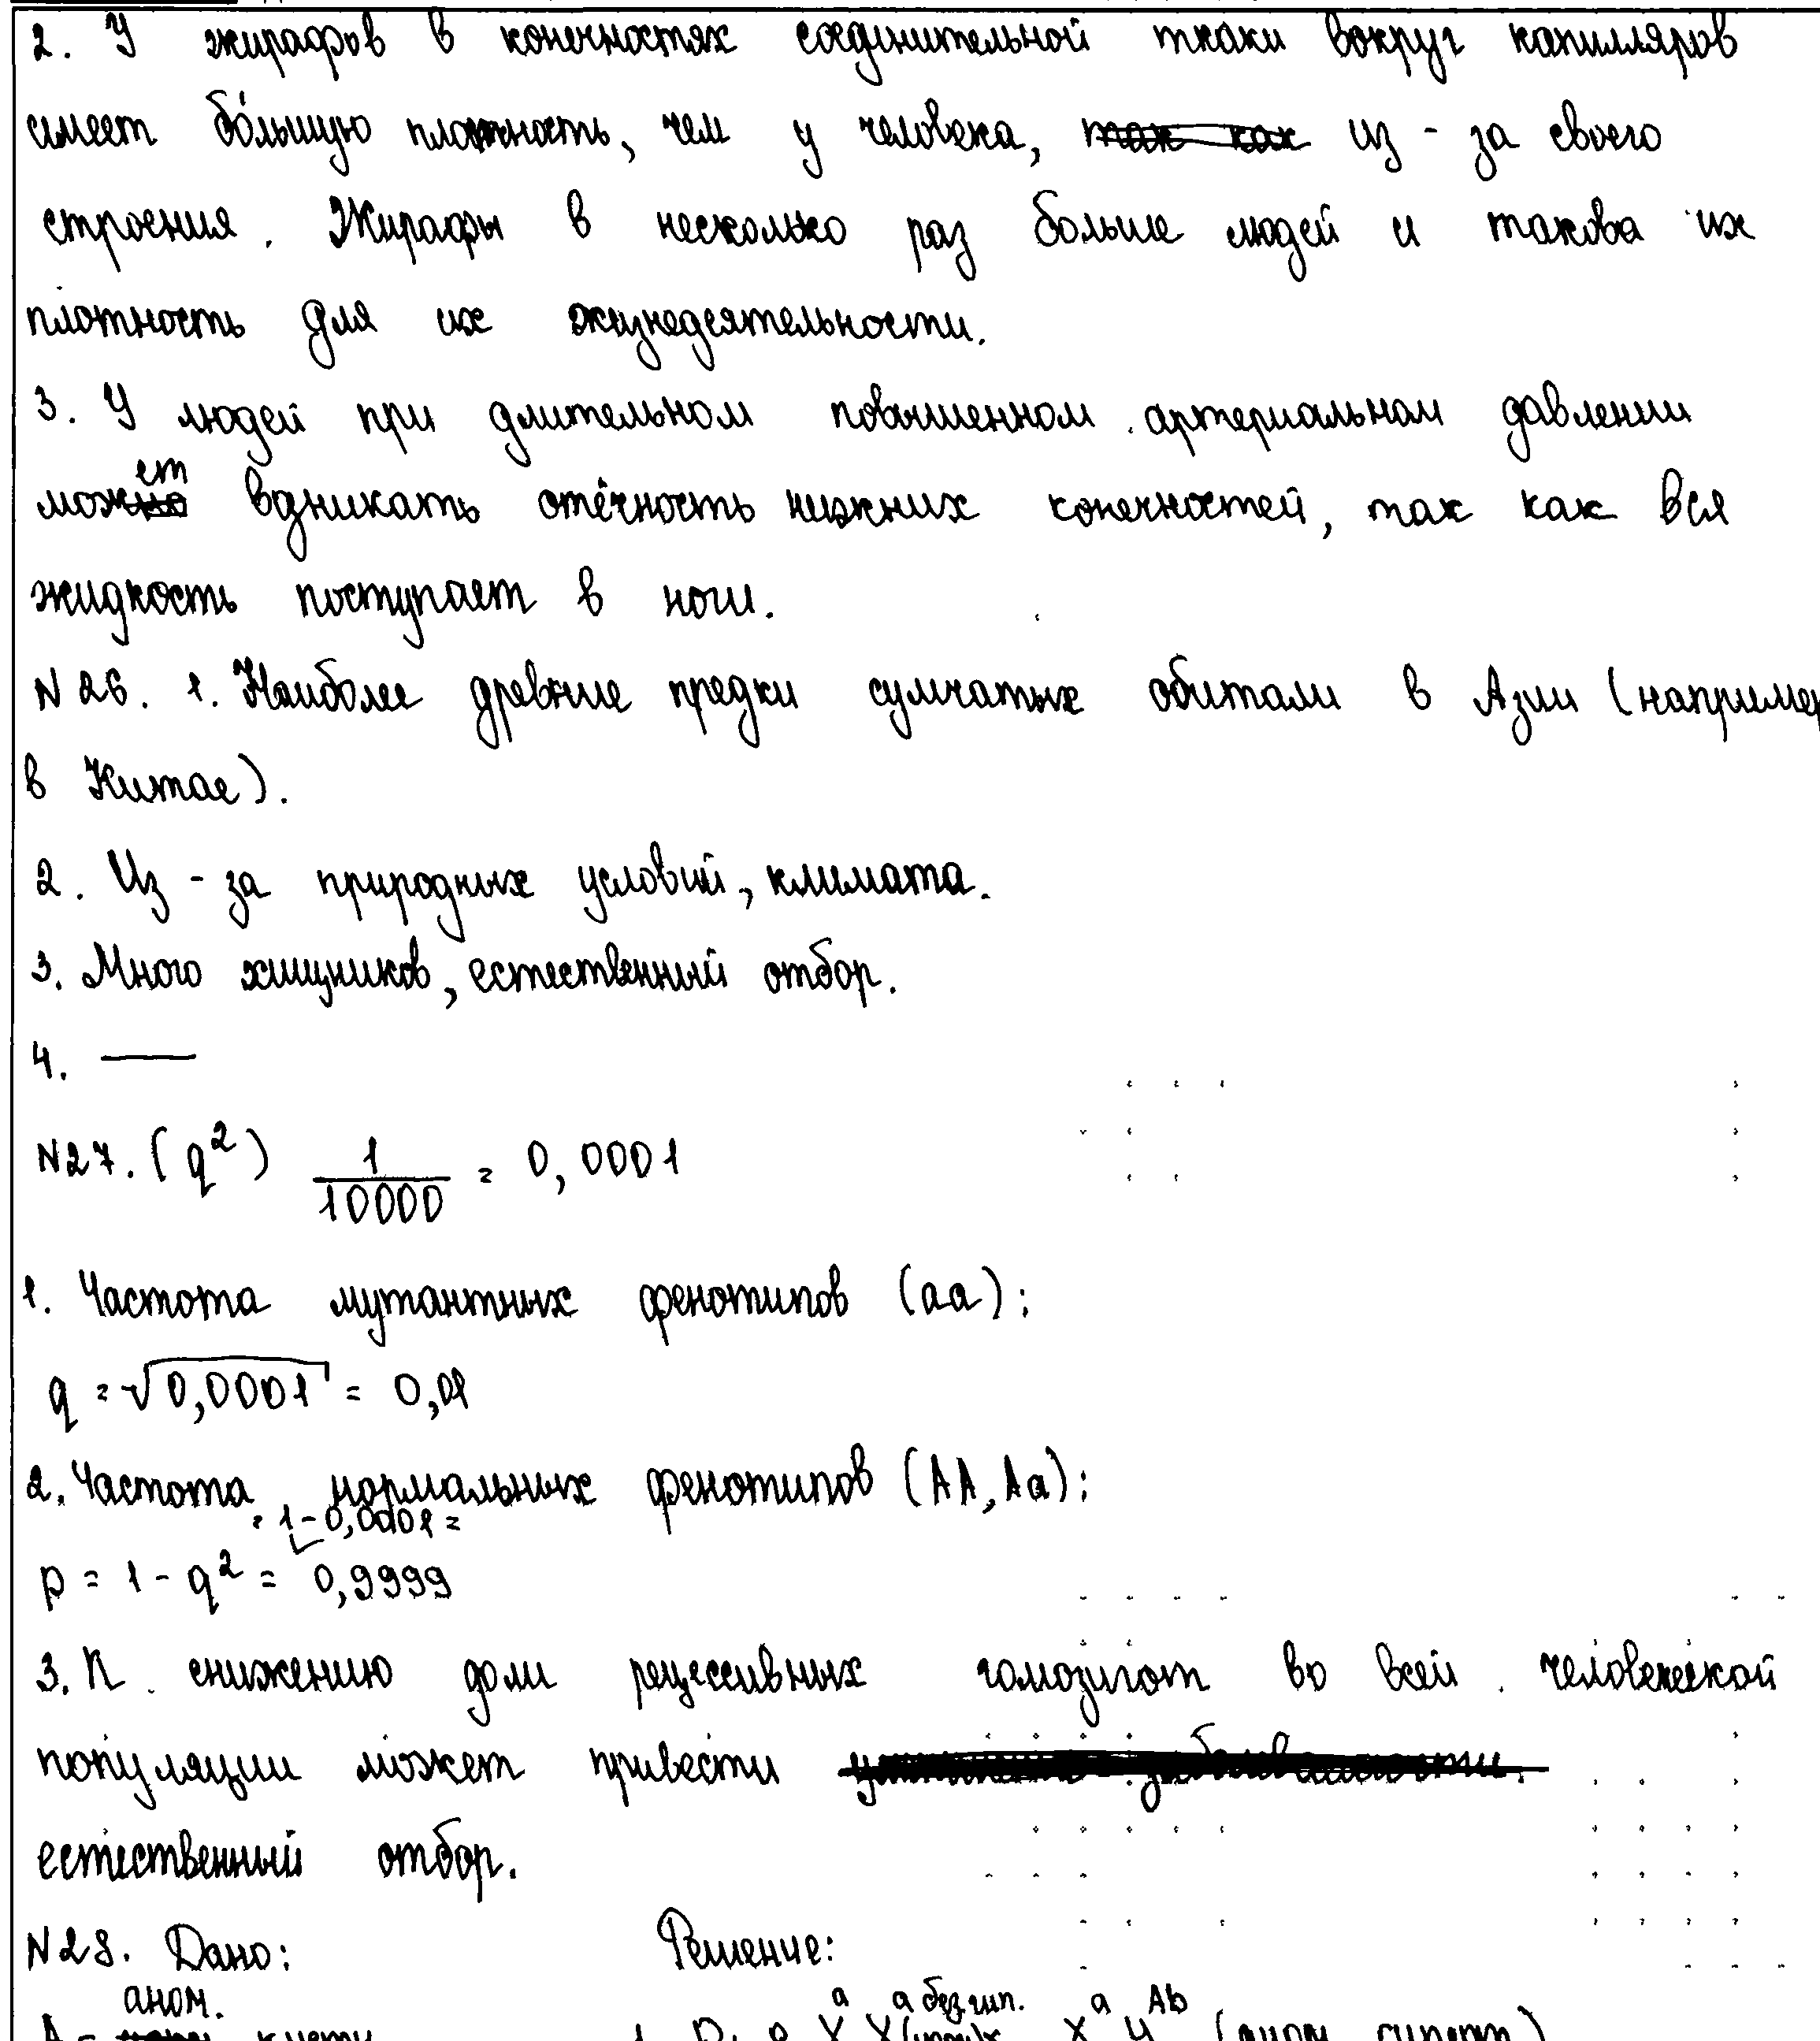 2. У жирафов в конечностях соединительной ткани вокруг капилляров
имеет бо́льшую плотность, чем у человека, так как из-за своего
строения. Жирафы в несколько раз больше людей и такова их
плотность для их жизнедеятельности.
3. У людей при длительном повышенном артериальном давлении
может возникать отёчность нижних конечностей, так как вся
жидкость поступает в ноги.
N 26. 1. Наиболее древние предки сумчатых обитали в Азии (например
в Китае).
2. Из-за природных условий, климата.
3. Много хищников, естественный отбор.
4. —
N27. (q²) 1/10000 = 0,0001
1. Частота мутантных фенотипов (аа):
q = √0,0001 = 0,01
2. Частота нормальных фенотипов (АА, Аа):
= 1 - 0,0001 =
p = 1 - q² = 0,9999
3. К снижению доли рецессивных гомозигот во всей человеческой
популяции может привести
естественный отбор.
N28. Дано: Решение:
аном.